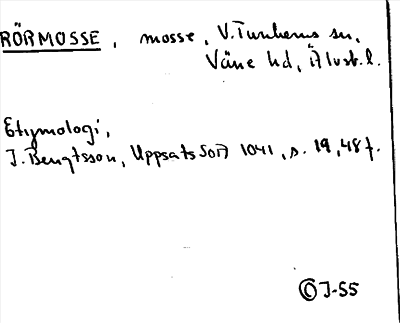 RÖRMOSSE, mosse, V. Tunhems sn,
Väne hd, Älvsb. l.
Etymologi,
J. Bengtsson, Uppsats SOA 1041, s. 19, 48 f.
© J-55